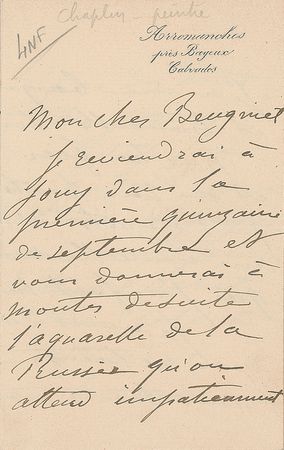 Chaplin - peintre
4NF
Arromanches
près Bayeux
Calvados
Mon cher Beugniet
je reviendrai à
Jouy dans la
première quinzaine
de septembre et
vous donnerai à
monter de suite
l'aquarelle de la
Russie qu'on
attend impatiemment